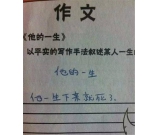 作文
《他的一生》
以平实的写作手法叙述某人一生的
他的一生
他一生下来就死了.